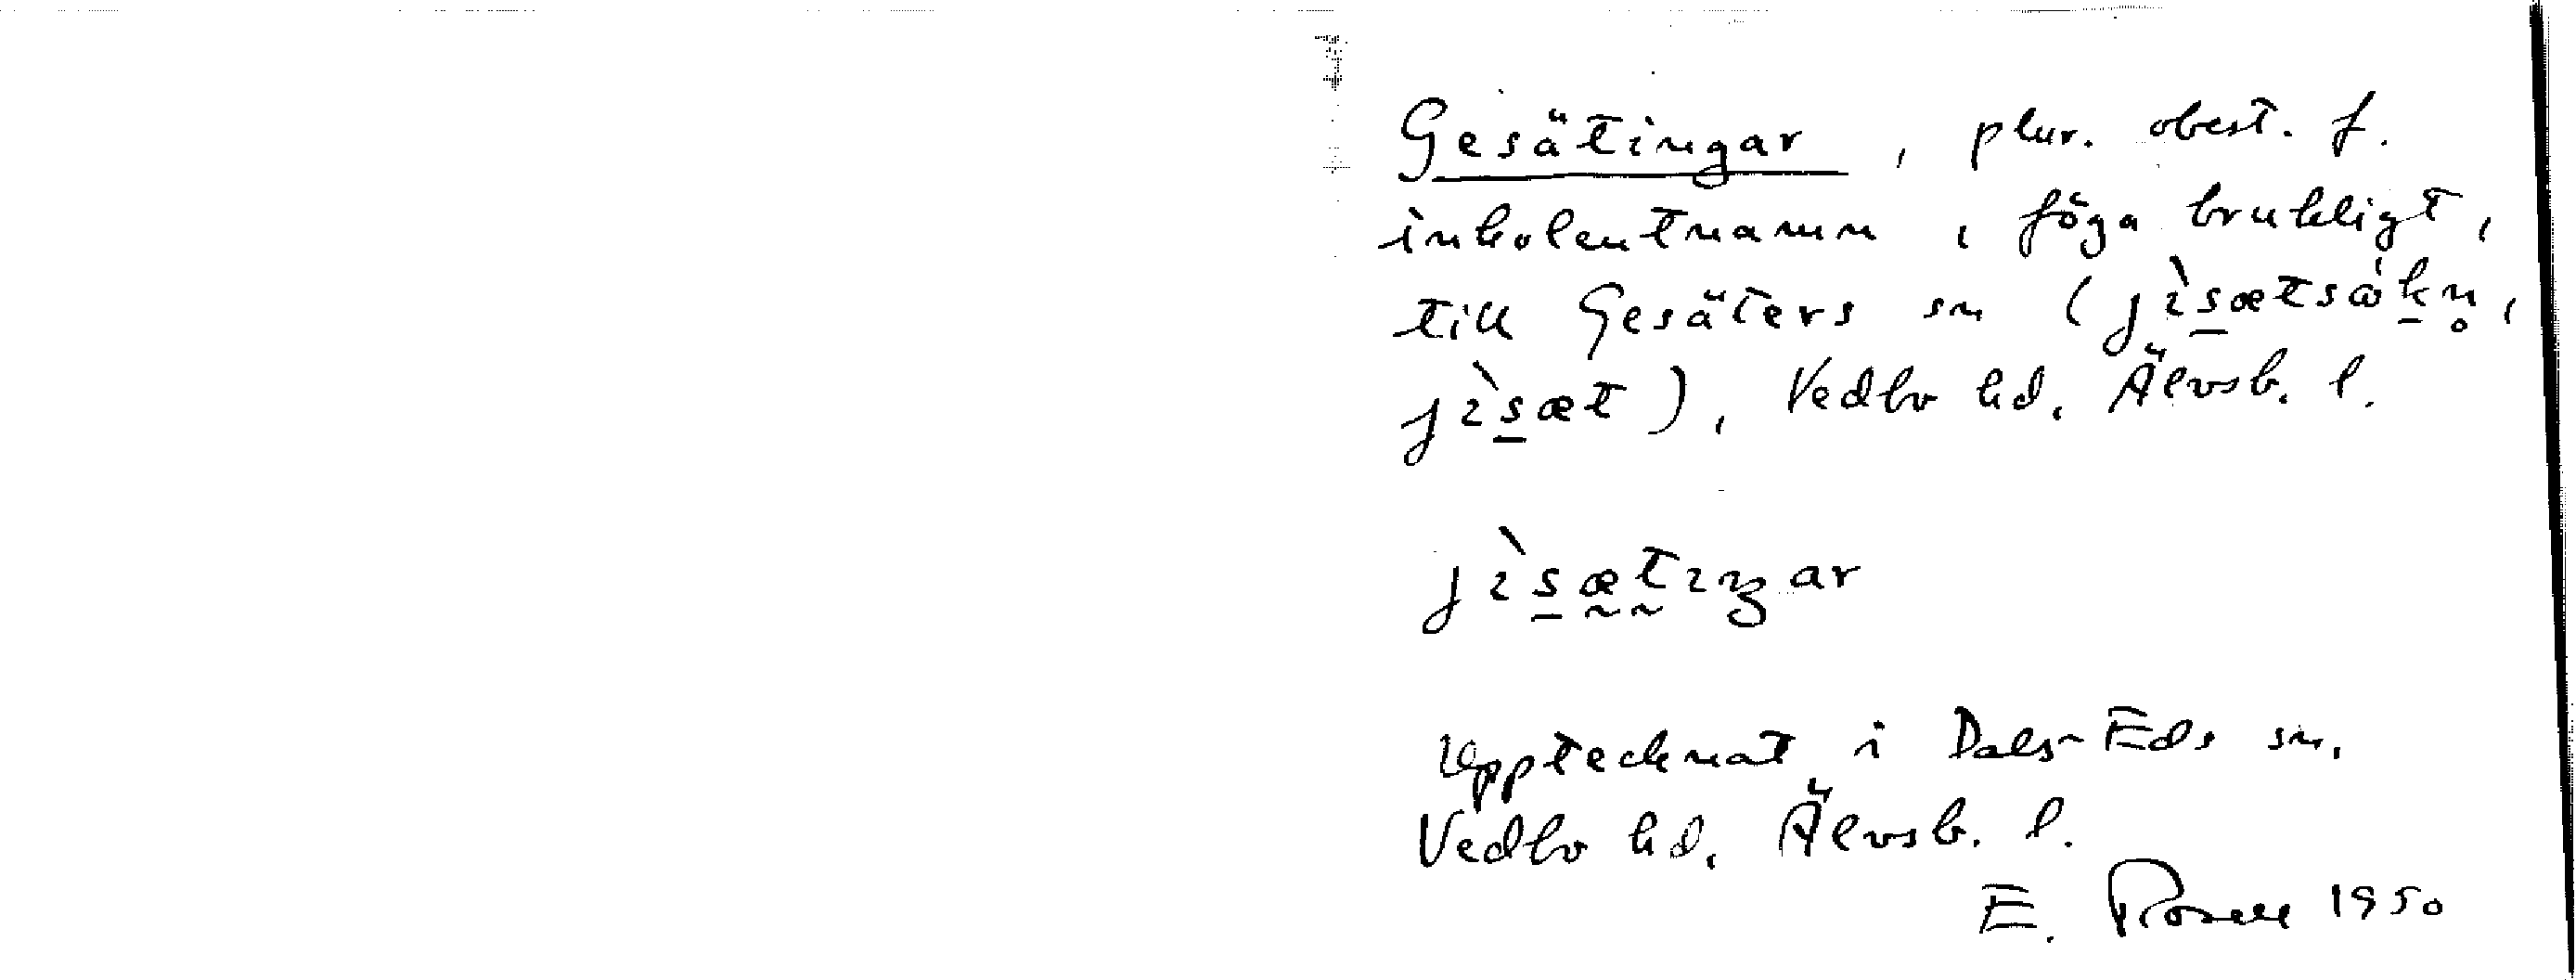 Gesätingar, plur. obest. f.
inkolentnamn, föga brukligt,
till Gesäters sn (jɩ̀s̲ætsɷ̀k̲n̥,
jɩ̀s̲æt), Vedbo hd, Älvsb. l.
jɩ̀s̲æ̰t̰ɩŋar
Upptecknat i Dals-Eds sn,
Vedbo hd, Älvsb. l.
E. Rosell 1950